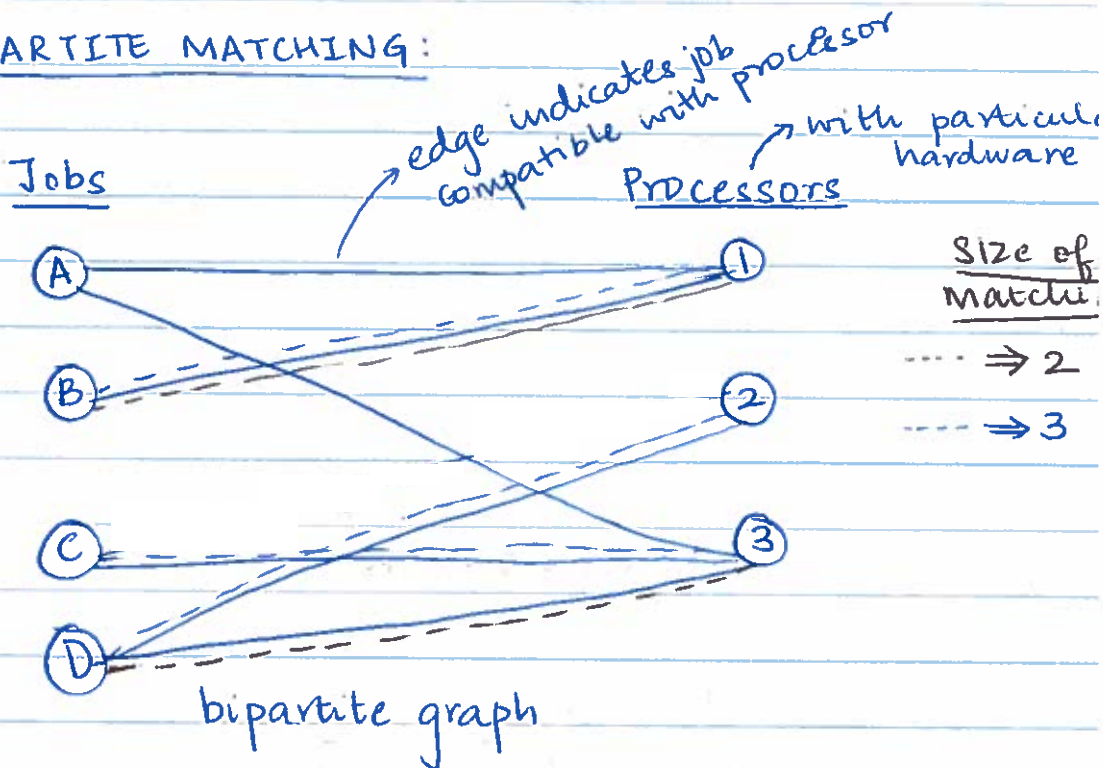 ARTITE MATCHING:
edge indicates job
compatible with processor
with particul
hardware
Jobs
Processors
A
1
Size of
Matchi
B
⇒ 2
2
⇒ 3
C
3
D
bipartite graph